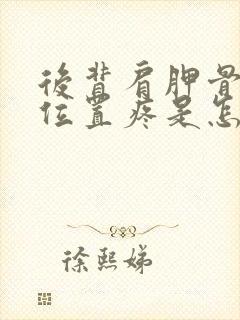 後背肩胛骨
位置疼是怎
徐熙娣